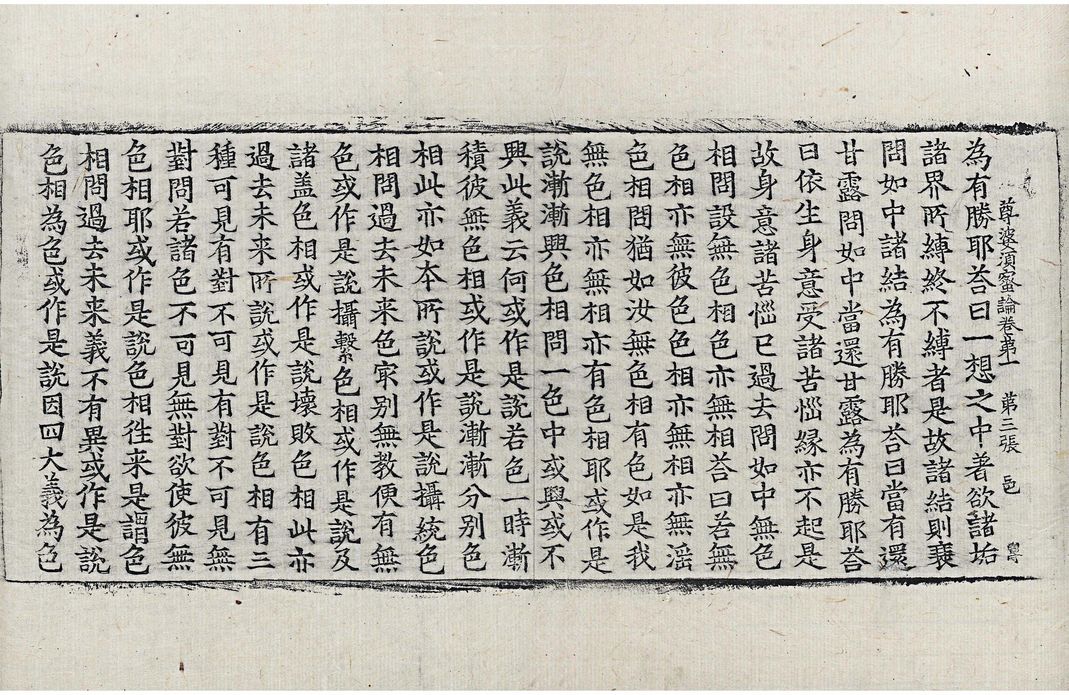 尊婆須蜜論卷第一　第三張　邑
為有勝耶荅曰一想之中著欲諸垢
諸界所縛終不縛者是故諸結則衰
問如中諸結為有勝耶荅曰當有還
甘露問如中當還甘露為有勝耶荅
曰依生身意受諸苦惱緣亦不起是
故身意諸苦惱已過去問如中無色
相問設無色相色亦無相荅曰若無
色相亦無彼色色相亦無相亦無滛
色相問猶如汝無色相有色如是我
無色相亦無相亦有色相耶或作是
說漸漸興色相問一色中或興或不
興此義云何或作是說若色一時漸
積彼無色相或作是說漸漸分別色
相此亦如本所說或作是說攝統色
相問過去未來色㝡別無教便有無
色或作是說攝繫色相或作是說及
諸盖色相或作是說壞敗色相此亦
過去未來所說或作是說色相有三
種可見有對不可見有對不可見無
對問若諸色不可見無對欲使彼無
色相耶或作是說色相徃来是謂色
相問過去未来義不有異或作是說
色相為色或作是說因四大義為色